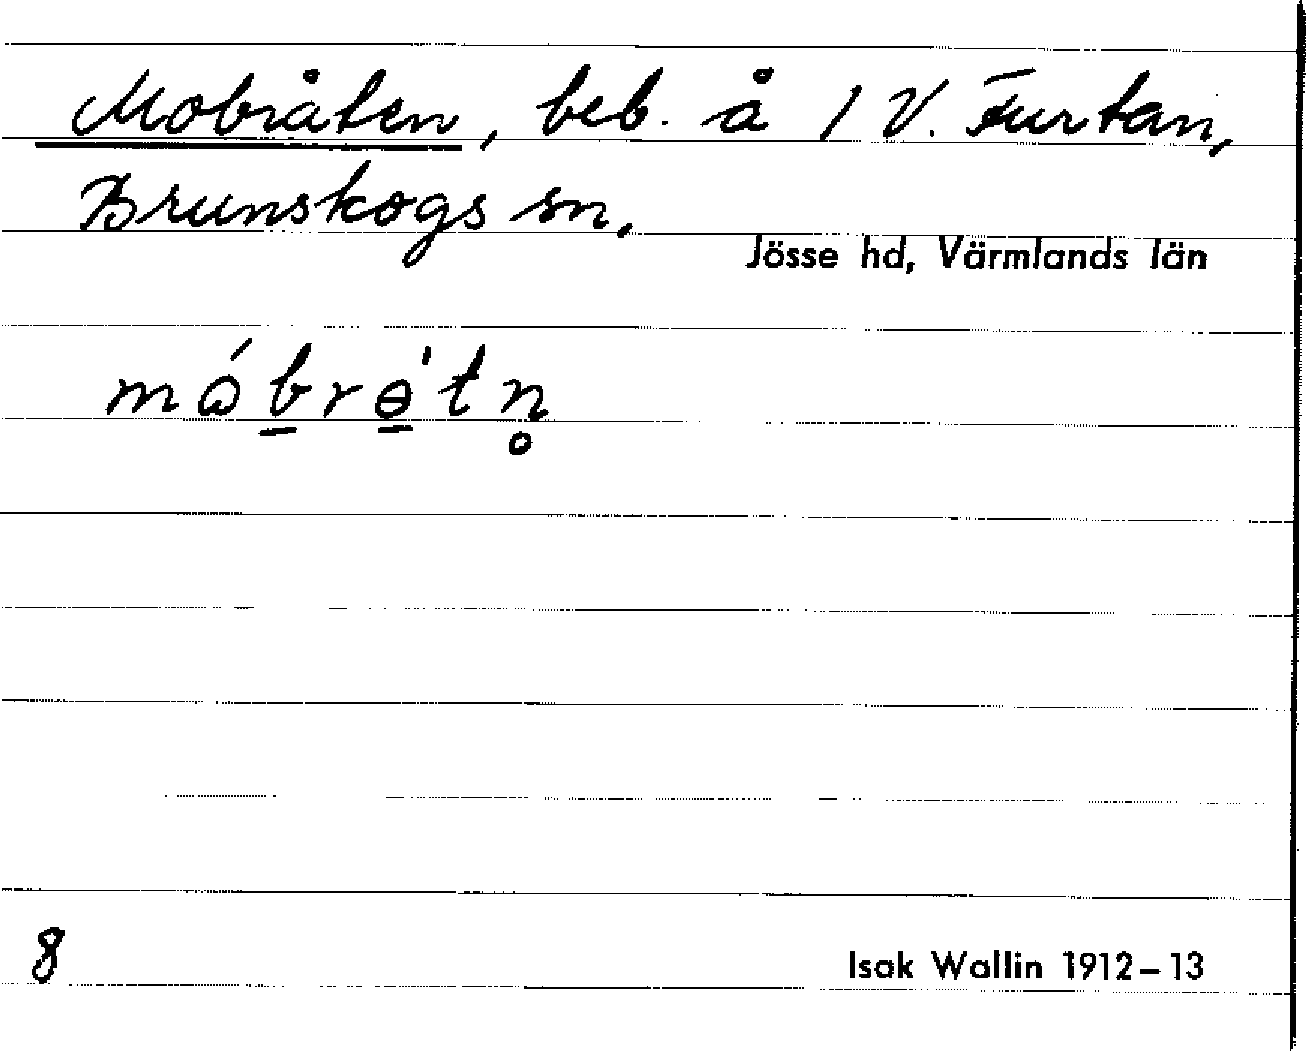 Mobråten, beb. å 1 V. Furtan,
Brunskogs sn,
Jösse hd, Värmlands län
mábrɵ̠'tn̥
8
Isak Wallin 1912–13